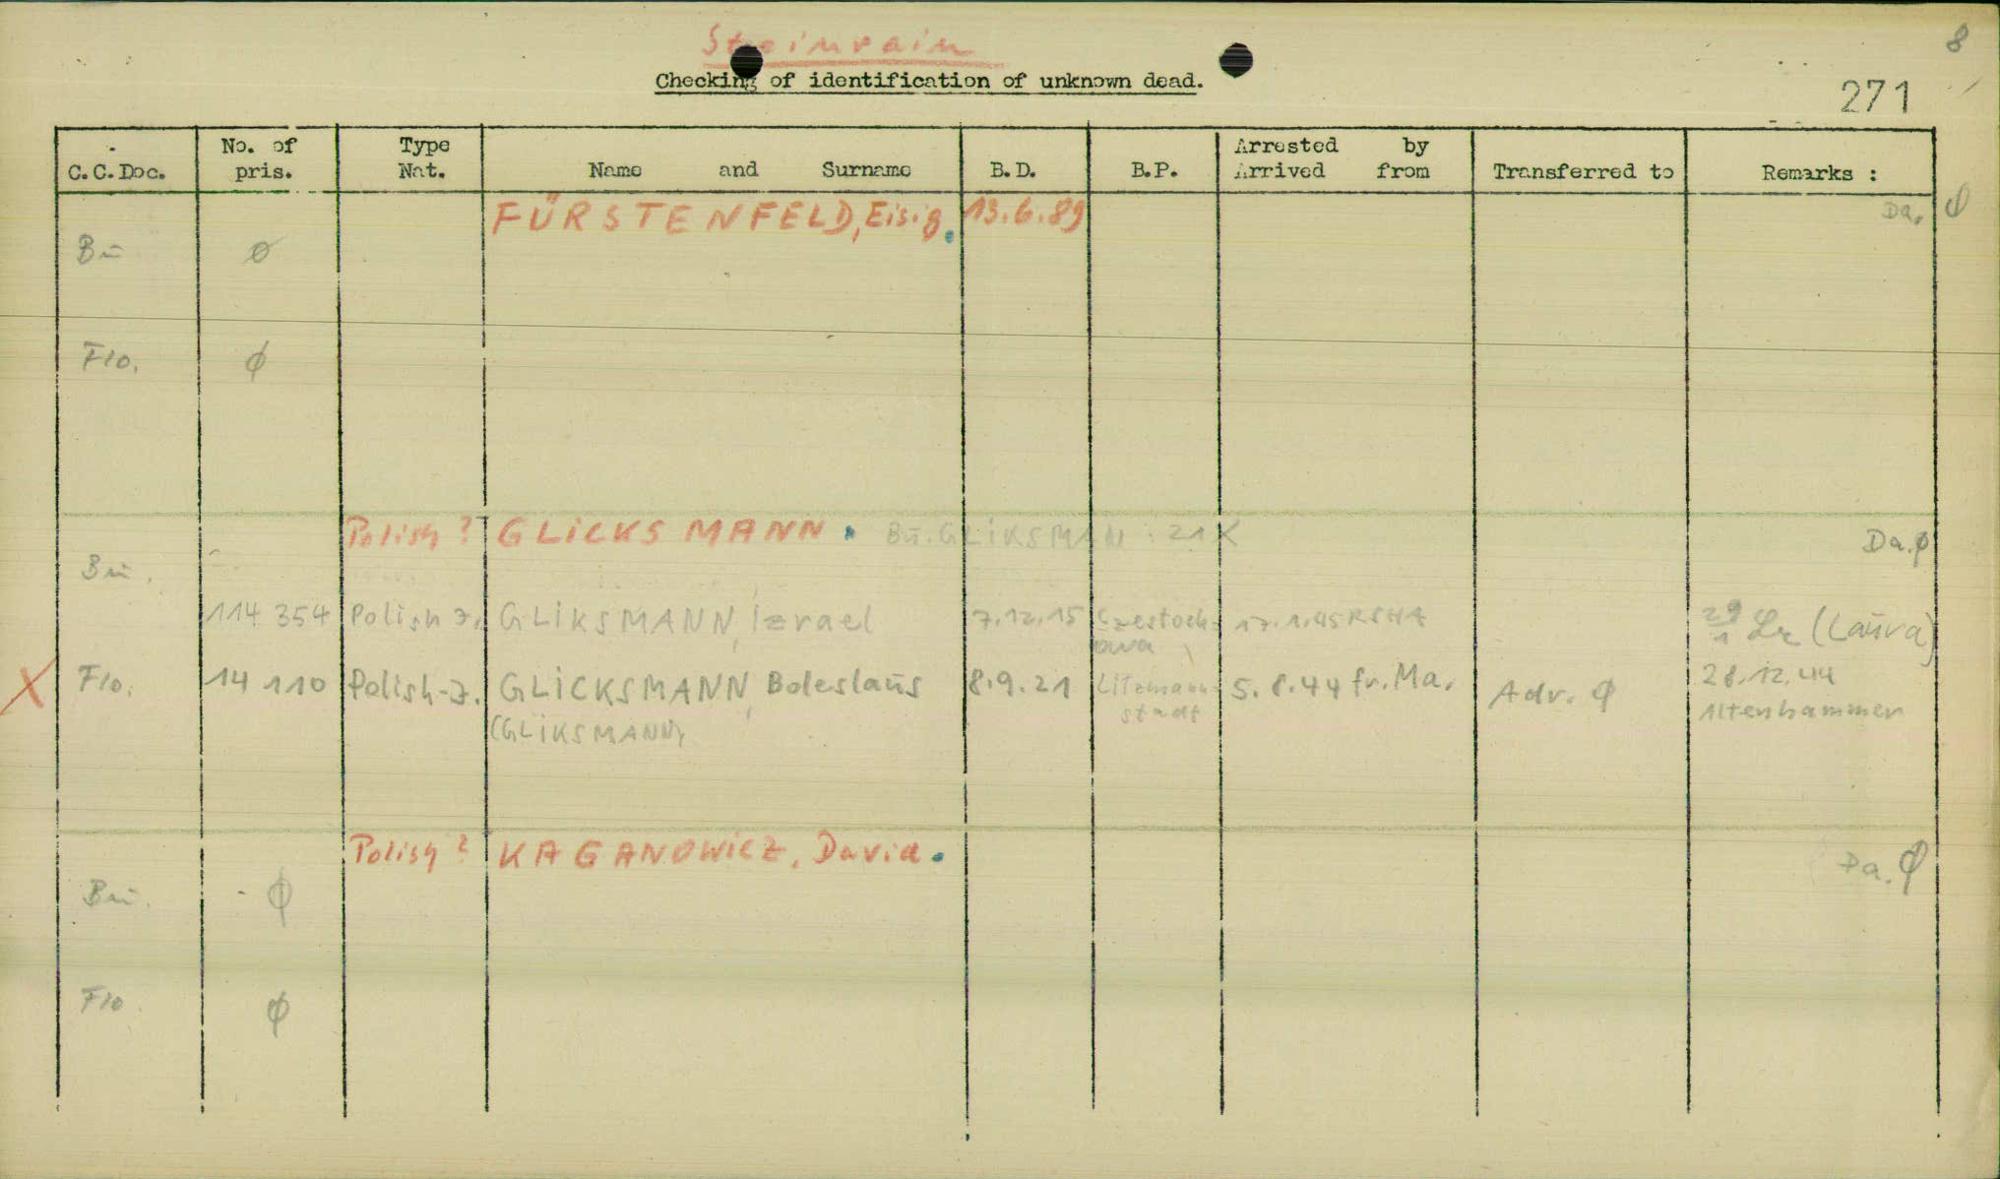 8
Steinrain
Checking of identification of unknown dead.
271
C.C.Doc. No. of pris. Type Nat. Name and Surname B.D. B.P. Arrested by Arrived from Transferred to Remarks :
FÜRSTENFELD, Eisig. 13.6.89 Da. ϕ
Bu ϕ
Flo. ϕ
Polish ? GLiCKSMANN. Bu. GLiKSMAN : 21 X Da. ϕ
Bu.
114 354 Polish J. GLiKSMANN, Izrael 7.12.15 Czestoch= owa 17.1.45 RSHA 29/1 (Laura)
X Flo. 14 110 Polish-J. GLiCKSMANN, Boleslaus 8.9.21 Litzmann= stadt 5.8.44 fr. Ma. Adr. ϕ 28.12.44 Altenhammer
(GLiKSMANN)
Polish ? KAGANOWiCZ, David. Da. ϕ
Bu. ϕ
Flo ϕ